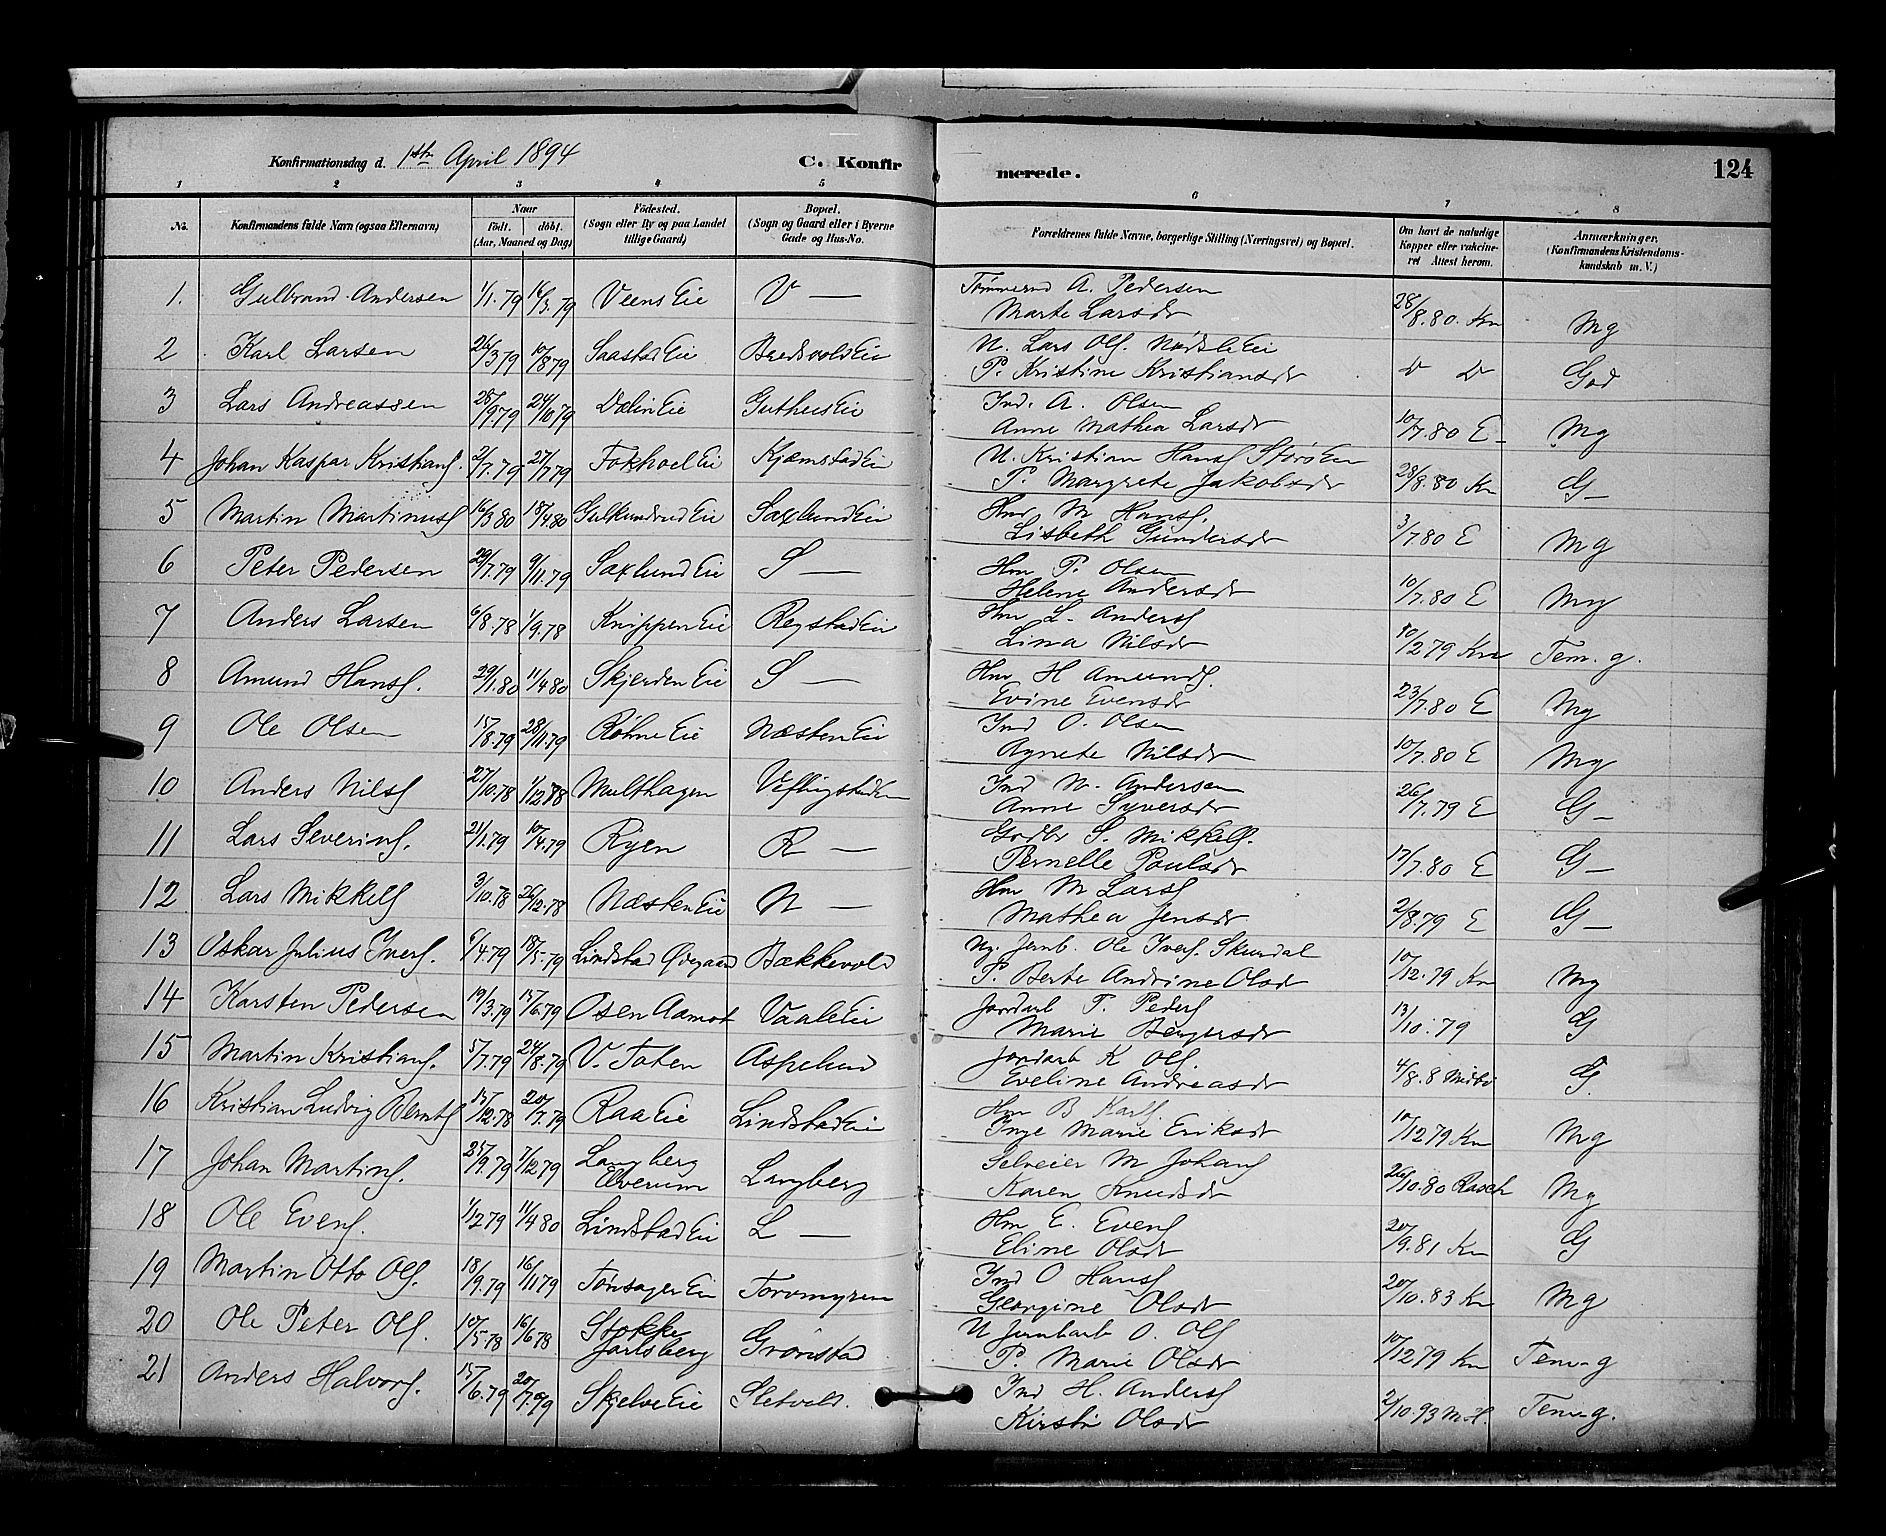 Konfirmationsdag d. 1ste April 1894
C. Konfirmerede.
124
1 2 3 4 5 6 7 8
No. Konfirmandens fulde Navn (ogsaa Efternavn) Naar født. døbt. (Aar, Maaned og Dag) Fødested. (Sogn eller By og paa Landet tillige Gaard) Bopæl. (Sogn og Gaard eller i Byerne Gade og Hus-No. Forældrenes fulde Navne, borgerlige Stilling (Næringsvei) og Bopæl. Om havt de naturlige Kopper eller vakcineret Attest herom. Anmærkninger. (Konfirmandens Kristendomskundskab m. V.)
1. Gulbrand Andersen 1/1.79 16/3.79 Veens Eie V — Tømmermd A. Pedersen
Marte Larsdr 28/8.80. Kn Mg
2 Karl Larsen 26/3 79 10/8 79 Saastad Eie Bredvold Eie U. Lars Ols. Nødsle Eie
P. Kristine Kristiansdr D D God
3 Lars Andreassen 28/9.79 24/10.79 Dælin Eie Guthus Eie Ind. A. Olsen
Anne Mathea Larsdr 10/7.80 E Mg
4 Johan Kaspar Kristians. 2/7.79 27/7 79 Fokhoel Eie Kjæmstad Eie U. Kristian Hans. Storø Eie
P. Margrete Jakobsdr 28/8.80 Kn G—
5 Martin Martinus. 16/3 80 18/4 80 Gulkundrud Eie Saxlund Eie Hm M Hans.
Lisbeth Gundersdr 3/7.80 E Mg
6 Peter Pedersen 29/7.79 9/11.79 Saxlund Eie S — Hm P. Olsen
Helene Andersdr 10/7.80 E Mg
7 Anders Larsen 6/8.78 1/9.78 Knippen Eie Rogstad Eie Hm L. Anders.
Lina Nilsdr 10/2 79 Kn Tem. g.
8 Amund Hans. 29/1.80 11/4 80 Skjerden Eie S — Hm H Amunds.
Evine Evensdr 23/7.80 E Mg
9 Ole Olsen 15/8.79 28/11.79 Røhne Eie Næsten Eie Ind O. Olsen
Agnete Nilsdr 10/7.80 E Mg
10 Anders Nils. 27/10.78 1/12 78 Multhagen Veflingstad Eie Ind N. Andersen
Anne Syversdr 26/7.79 E G—
11 Lars Severins. 21/1.79 10/4.79 Ryen R — Gaardbr S. Mikkels.
Pernelle Paulsdr 17/7.80 E G—
12 Lars Mikkels. 3/10.78 26/12.78 Næsten Eie N — Hm M Lars.
Mathea Jensdr 2/8.79 E G—
13 Oskar Julius Ivers. 6/4.79 18/5.79 Lindstad Øvegaard Bækkevold Ug. Jernb. Ole Ivers. Skurdal
P. Berte Andrine Olsdr 10/12.79 Kn Mg
14 Karsten Pedersen 19/3.79 15/6.79 Osen Aamot Vaale Eie Jordarb P. Peders.
Marie Bengersdr 13/10.79 G
15 Martin Kristians. 5/7.79 24/8.79 V. Toten Aspelund Jordarb K Ols.
Eveline Andreasdr 4/8.8 G.
16 Kristian Ludvig Bernts. 15/12.78 20/7.79 Raa Eie Lindstad Eie Hm B Karls.
Inge Marie Eriksdr 10/12 79 Kn Mg
17 Johan Martins. 25/9.79 7/12 79 Langberg
Elverum Langberg Selveier M Johans.
Karen Knudsdr 26/10.80 Rasch Mg
18 Ole Evens. 1/2 79 11/4 80 Lindstad Eie L — Hm E. Evens.
Eline Olsdr 20/9.81 Kn G
19 Martin Otto Ols. 18/9.79 16/11 79 Tønsager Eie Torvmyren Ind O Hans.
Georgine Olsdr 20/10.83 Kn Mg
20 Ole Peter Ols. 10/5.78 16/6 78 Stokke
Jarlsberg Grønstad U Jernbarb O. Ols.
P. Marie Olsdr 10/12 79 Kn Tem-g
21 Anders Halvors. 15/6.79 20/7.79 Skjelve Eie Sletvold. Ind H. Anders.
Kirsti Olsdr 2/10.93 Tem-g.